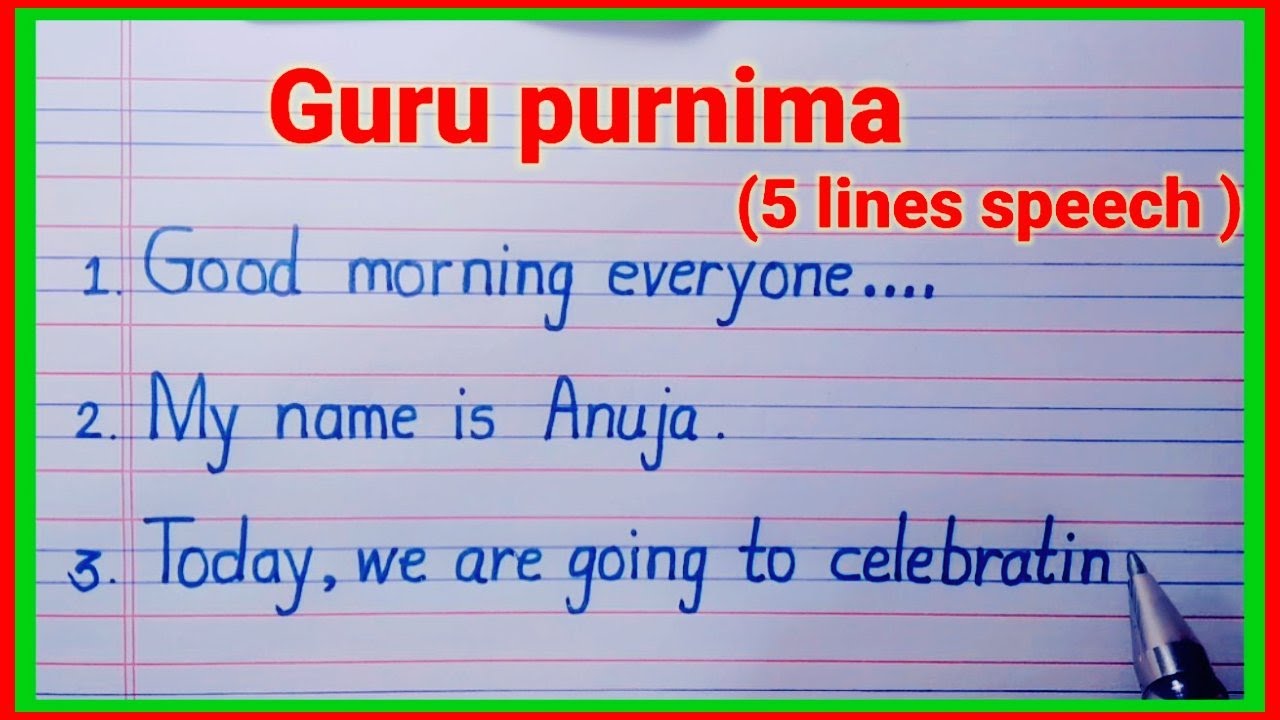 Guru purnima
(5 lines speech )
1. Good morning everyone....
2. My name is Anuja.
3. Today, we are going to celebratin